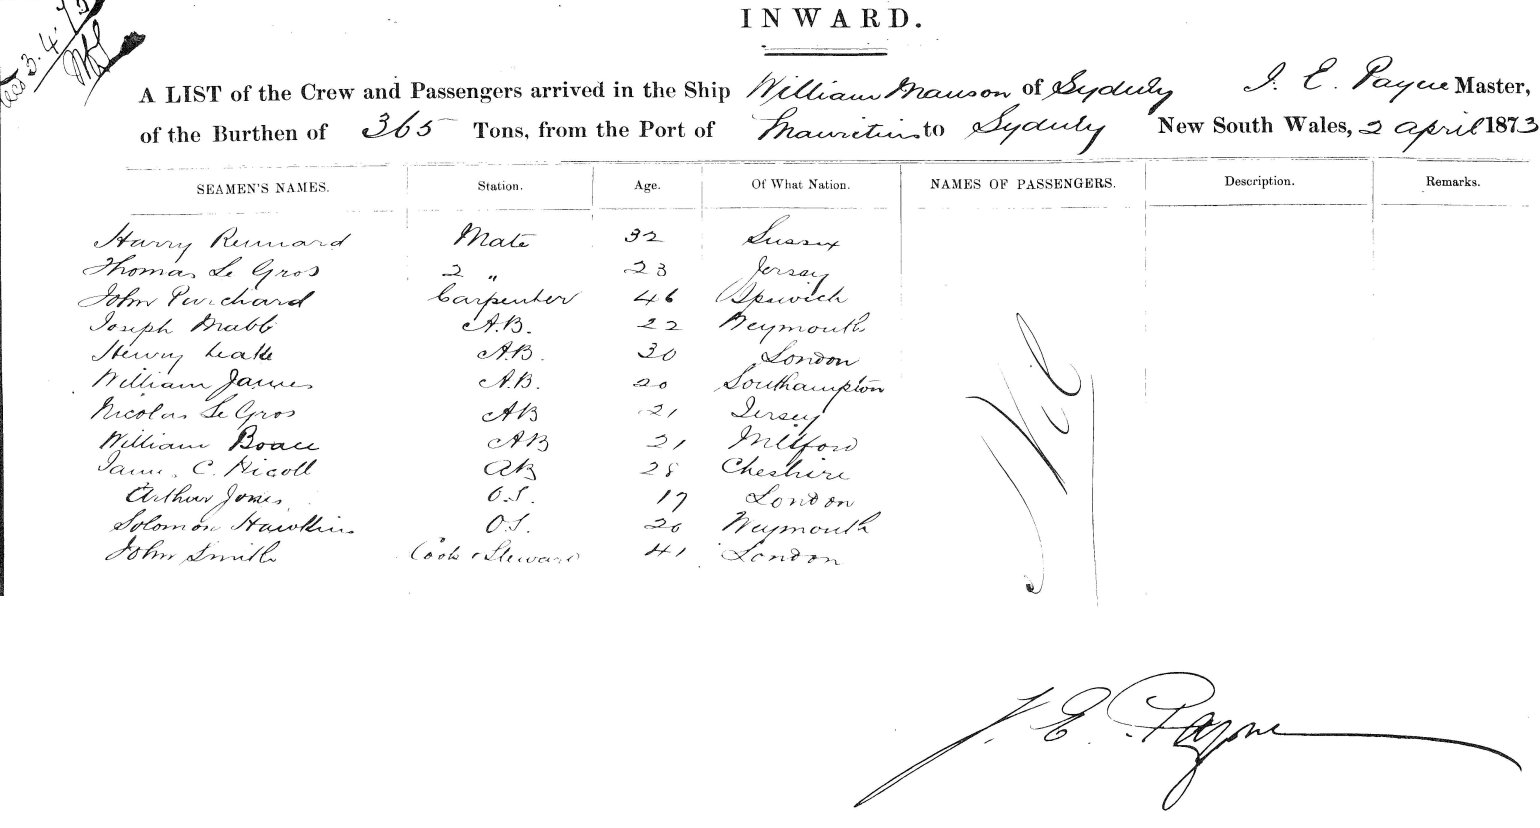 3.4.73
INWARD.
A LIST of the Crew and Passengers arrived in the Ship William Manson of Sydney J. E. Payne Master,
of the Burthen of 365 Tons, from the Port of Mauritius to Sydney New South Wales, 2 april 1873
SEAMEN'S NAMES. Station. Age. Of What Nation. NAMES OF PASSENGERS. Description. Remarks.
Harry Rennard Mate 32 Sussex
Thomas Le Gros 2 " 23 Jersey
John Purchard Carpenter 46 Ipswich
Joseph Mabb A.B. 22 Weymouth
Henry Leake A.B. 30 London
William James A.B. 20 Southampton
Nicolas Le Gros AB 21 Jersey
William Boace AB 21 Milford
James C. Nicoll AB 28 Cheshire
Arthur Jones O.S. 17 London
Solomon Hawkins O.S. 20 Weymouth
John Smith Cook & Steward 41 London
Nil
J. E. Payne